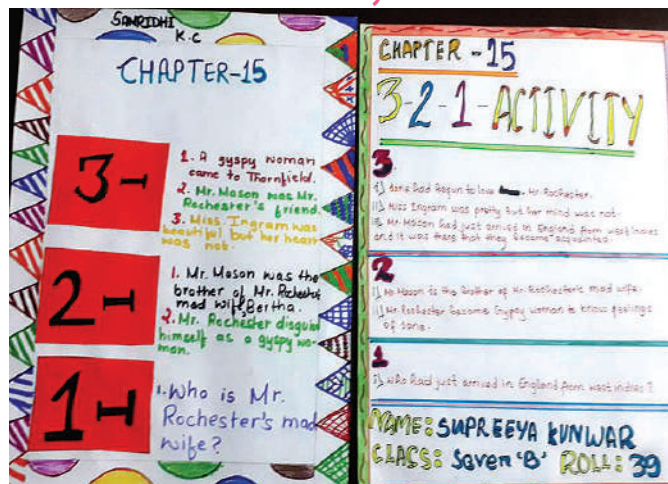 SANRIDHI
K.C
CHAPTER-15
3-
1. A gyspy woman
came to Thornfield.
2. Mr. Mason was Mr.
Rochester's friend.
3. Miss Ingram was
beautiful but her heart
was not.
2-
1. Mr. Mason was the
brother of Mr. Rochester's
mad wife, Bertha.
2. Mr. Rochester disguid
himself as a gyspy wo-
man.
1-
1. Who is Mr.
Rochester's mad
wife?
CHAPTER -15
3-2-1-ACTIVITY
3.
i) had begun to love Mr. Rochester.
ii) Miss Ingram was pretty but her mind was not.
iii) Mr. Mason had just arrived in England from west indies
and it was there that they became acquainted.
2
i) Mr. Mason is the brother of Mr. Rochester's mad wife.
ii) Mr. Rochester become Gypsy woman to know feelings
of Jane.
1
i) Who had just arrived in England from west indies?
NAME: SUPREEYA KUNWAR
CLASS: Seven 'B' ROLL: 39